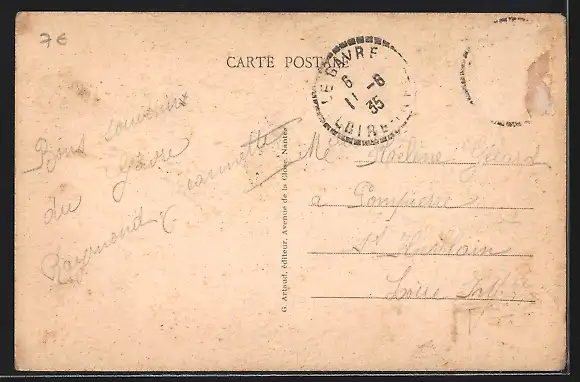 7€
CARTE POSTALE
LE GAVRE
6
11 -6
35
LOIRE-
Bons souvenirs
du Gâvre
Raymond
Jeannette
G. Artaud, éditeur, Avenue de la Close, Nantes
Me Hélène Gérard
à Pompierre
St Herblain
Loire Infre